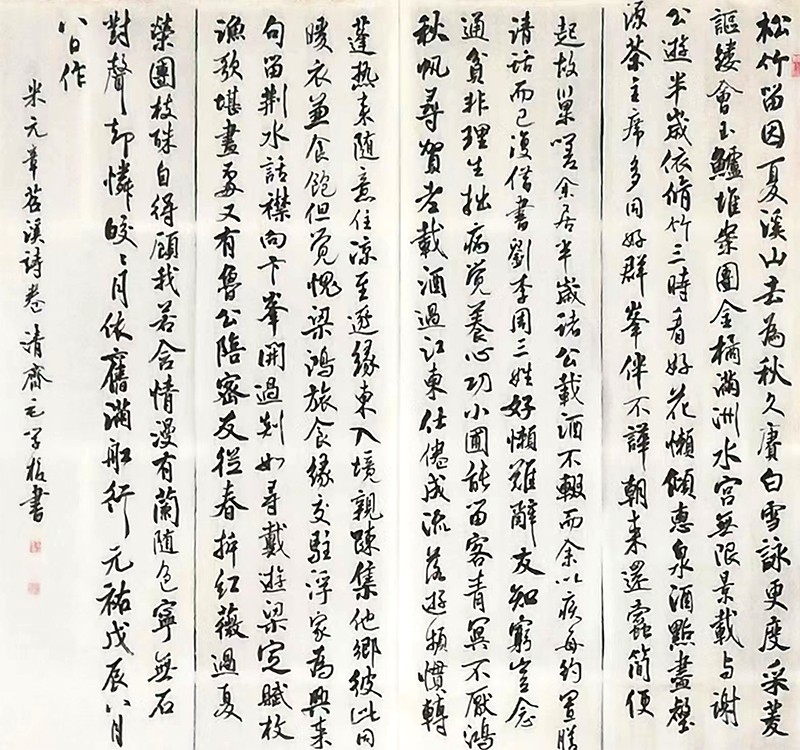 松竹留因夏溪山去為秋久賡白雪詠更度采菱
謳縷會玉鱸堆案團金橘滿洲水宮無限景載与謝
公遊半歲依脩竹三時看好花懶傾惠泉酒點盡壑
源茶主席多同好群峯伴不譁朝来還蠹簡便
起故巢嗟余居半歲諸公載酒不輟而余以疾每約置膳
清話而已復借書劉李周三姓好懶難辭友知窮豈念
通貧非理生拙病覺養心功小圃能留客青冥不厭鴻
秋帆尋賀老載酒過江東仕倦成流落遊頻慣轉
蓬熱来隨意住涼至逐緣東入境親疎集他鄉彼此同
暖衣兼食飽但覺愧梁鴻旅食緣交駐浮家為興来
句留荆水話襟向卞峯開過剡如尋戴遊梁定賦枚
漁歌堪畫處又有魯公陪密友從春拆紅薇過夏
榮團枝殊自得顧我若含情漫有蘭隨色寧無石
對聲却憐皎々月依舊滿舡行元祐戊辰八月
八日作
米元章苕溪詩卷清齋毛學書